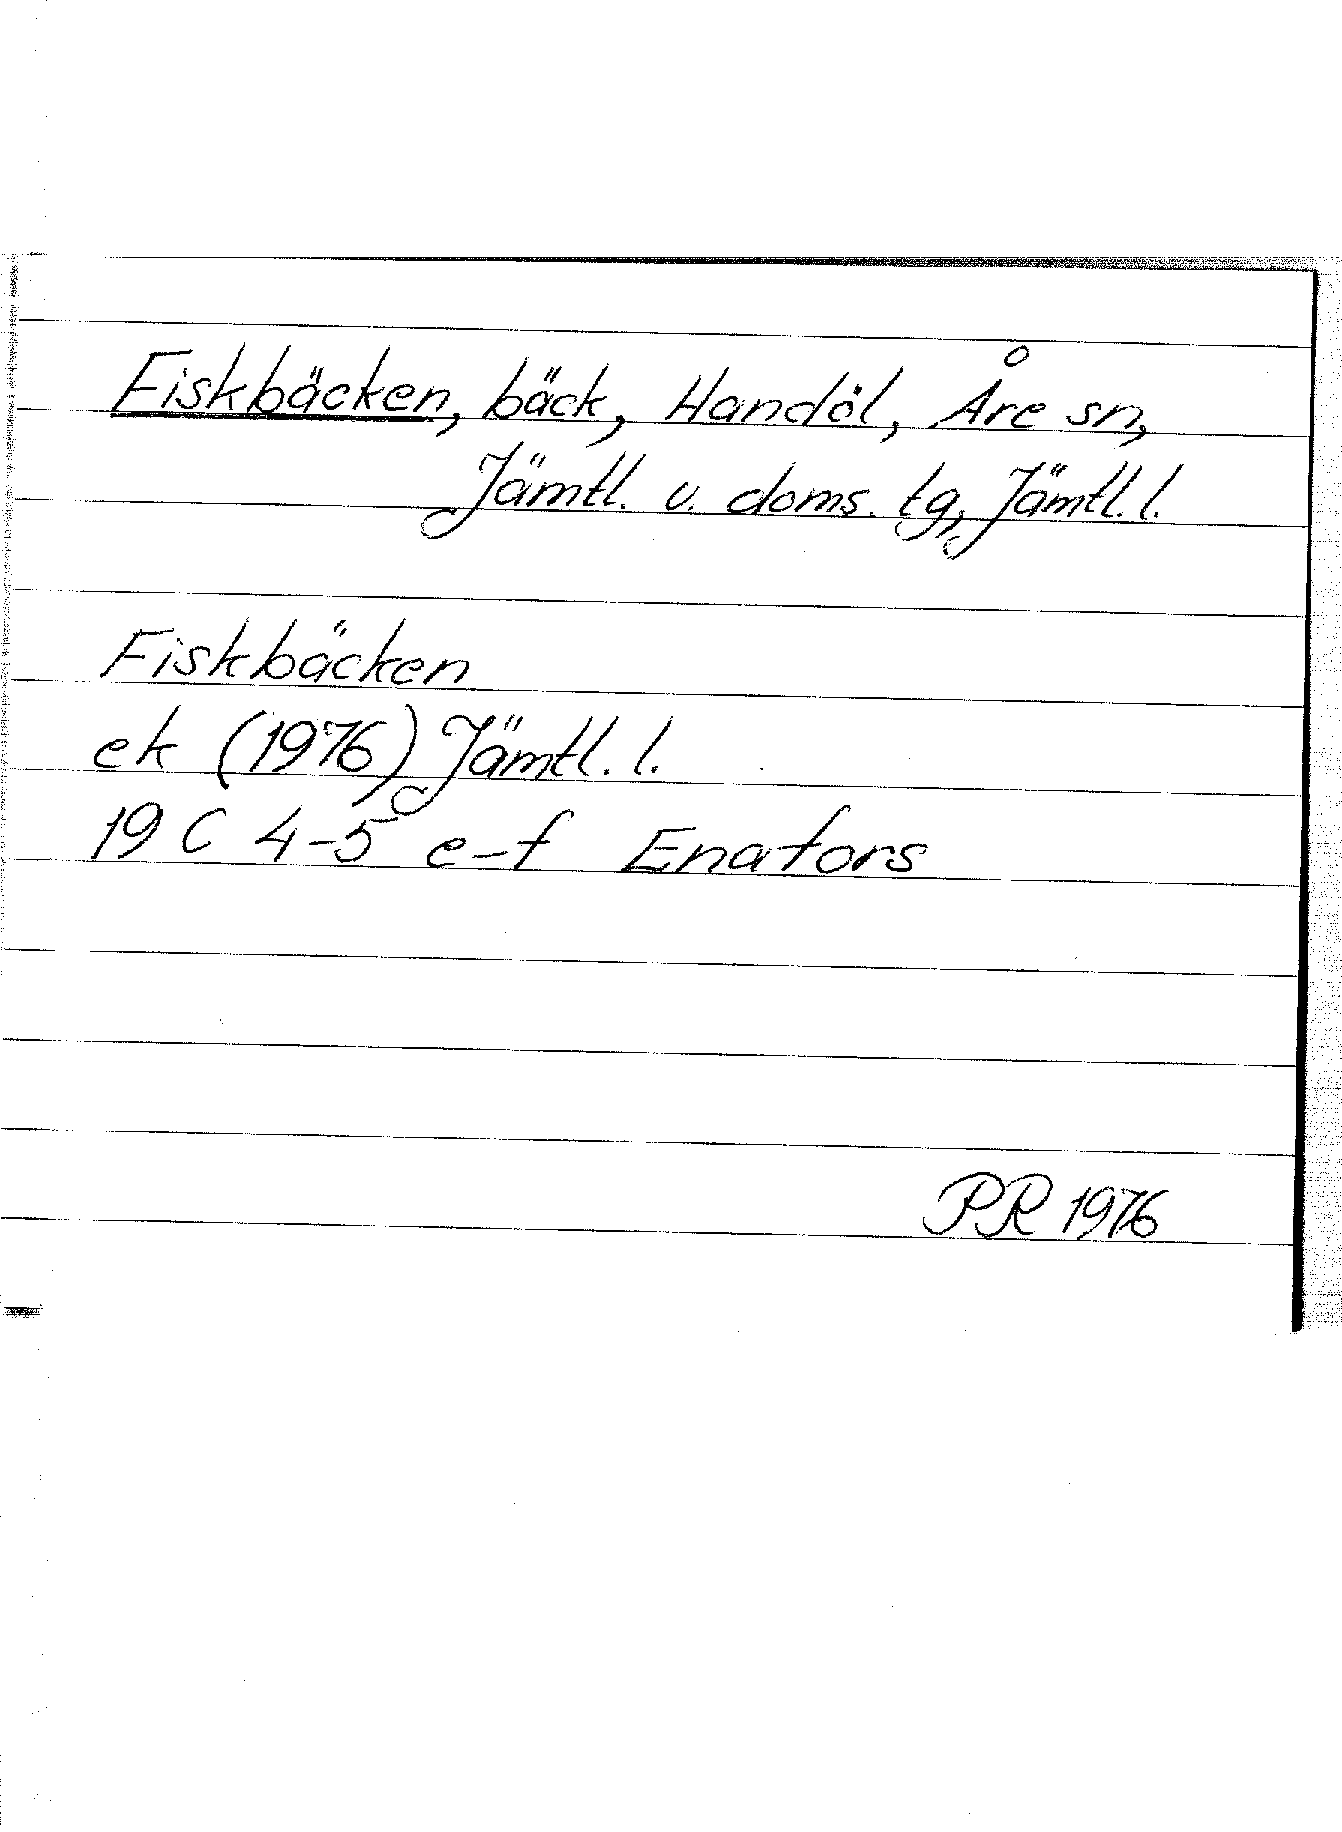 Fiskbäcken, bäck, Handöl, Åre sn,
Jämtl. v. doms. tg, Jämtl. l.
Fiskbäcken
ek (1976) Jämtl. l.
19 C 4-5 e-f Enafors
PR 1976